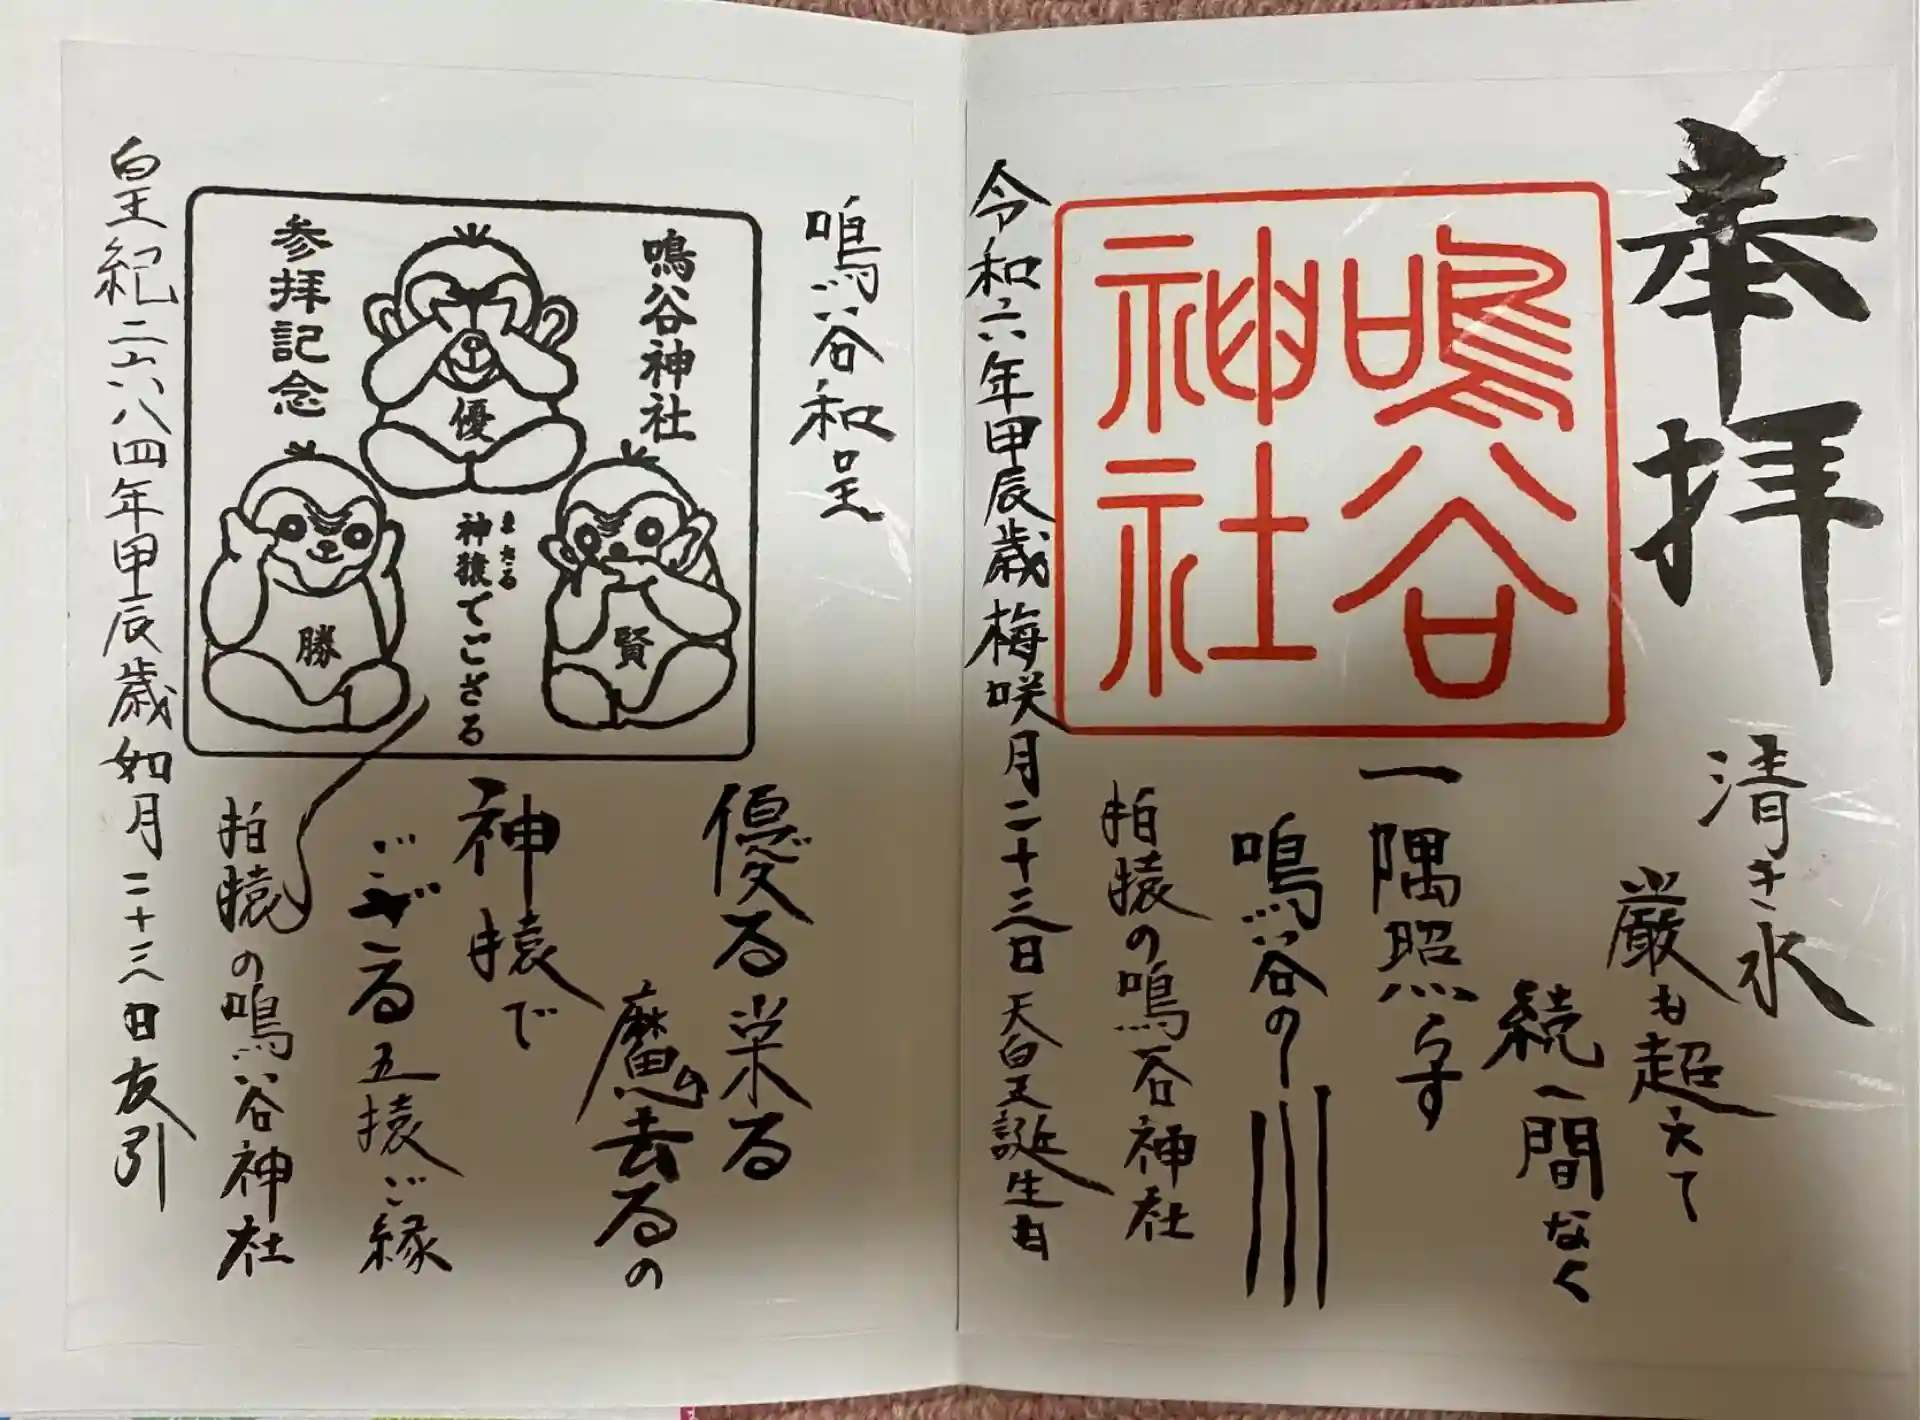 奉拝
鳴谷
神社
清き水
厳も超えて
続一間なく
一隅照らす
鳴谷の川
拍猿の鳴谷神社
令和六年甲辰歳梅咲月二十三日天皇誕生日
鳴谷和呈
鳴谷神社
参拝記念
優
賢
勝
まさる
神猿でござる
優る栄る
魔の去るの
神猿で
ござる五猿ご縁
拍猿の鳴谷神社
皇紀二六八四年甲辰歳如月二十三日友引